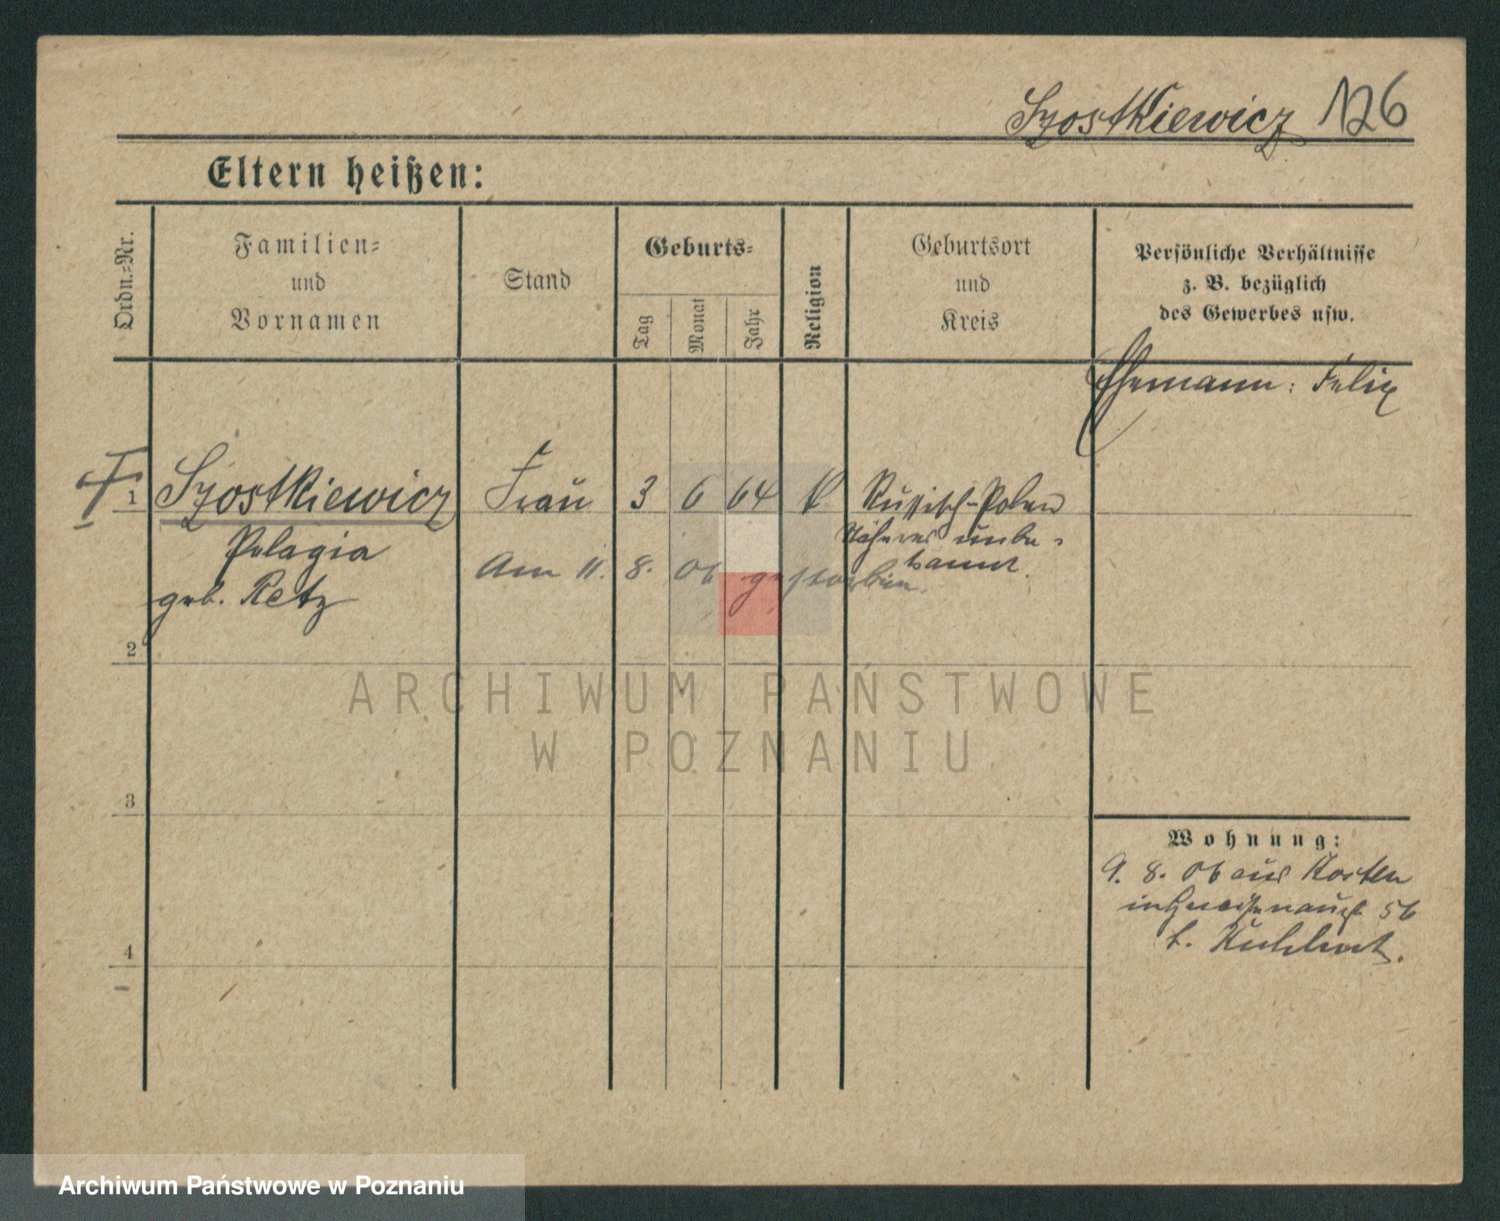 Szostkiewicz 126
Eltern heißen:
Ordn.=Nr.
Familien=
und
Vornamen
Stand
Geburts=
Tag
Monat
Jahr
Religion
Geburtsort
und
Kreis
Persönliche Verhältnisse
z. B. bezüglich
des Gewerbes usw.
Ehemann: Felix
1 Szostkiewicz Frau 3 6 64 k Russisch-Polen
Pelagia
Näheres unbe-
kannt
geb. Retz
Am 11. 8. 06 gestorben.
2
3
4
Wohnung:
9. 8. 06 aus Kosten
in Gneisenaustr 56
b.
ARCHIWUM PAŃSTWOWE
W POZNANIU
Archiwum Państwowe w Poznaniu